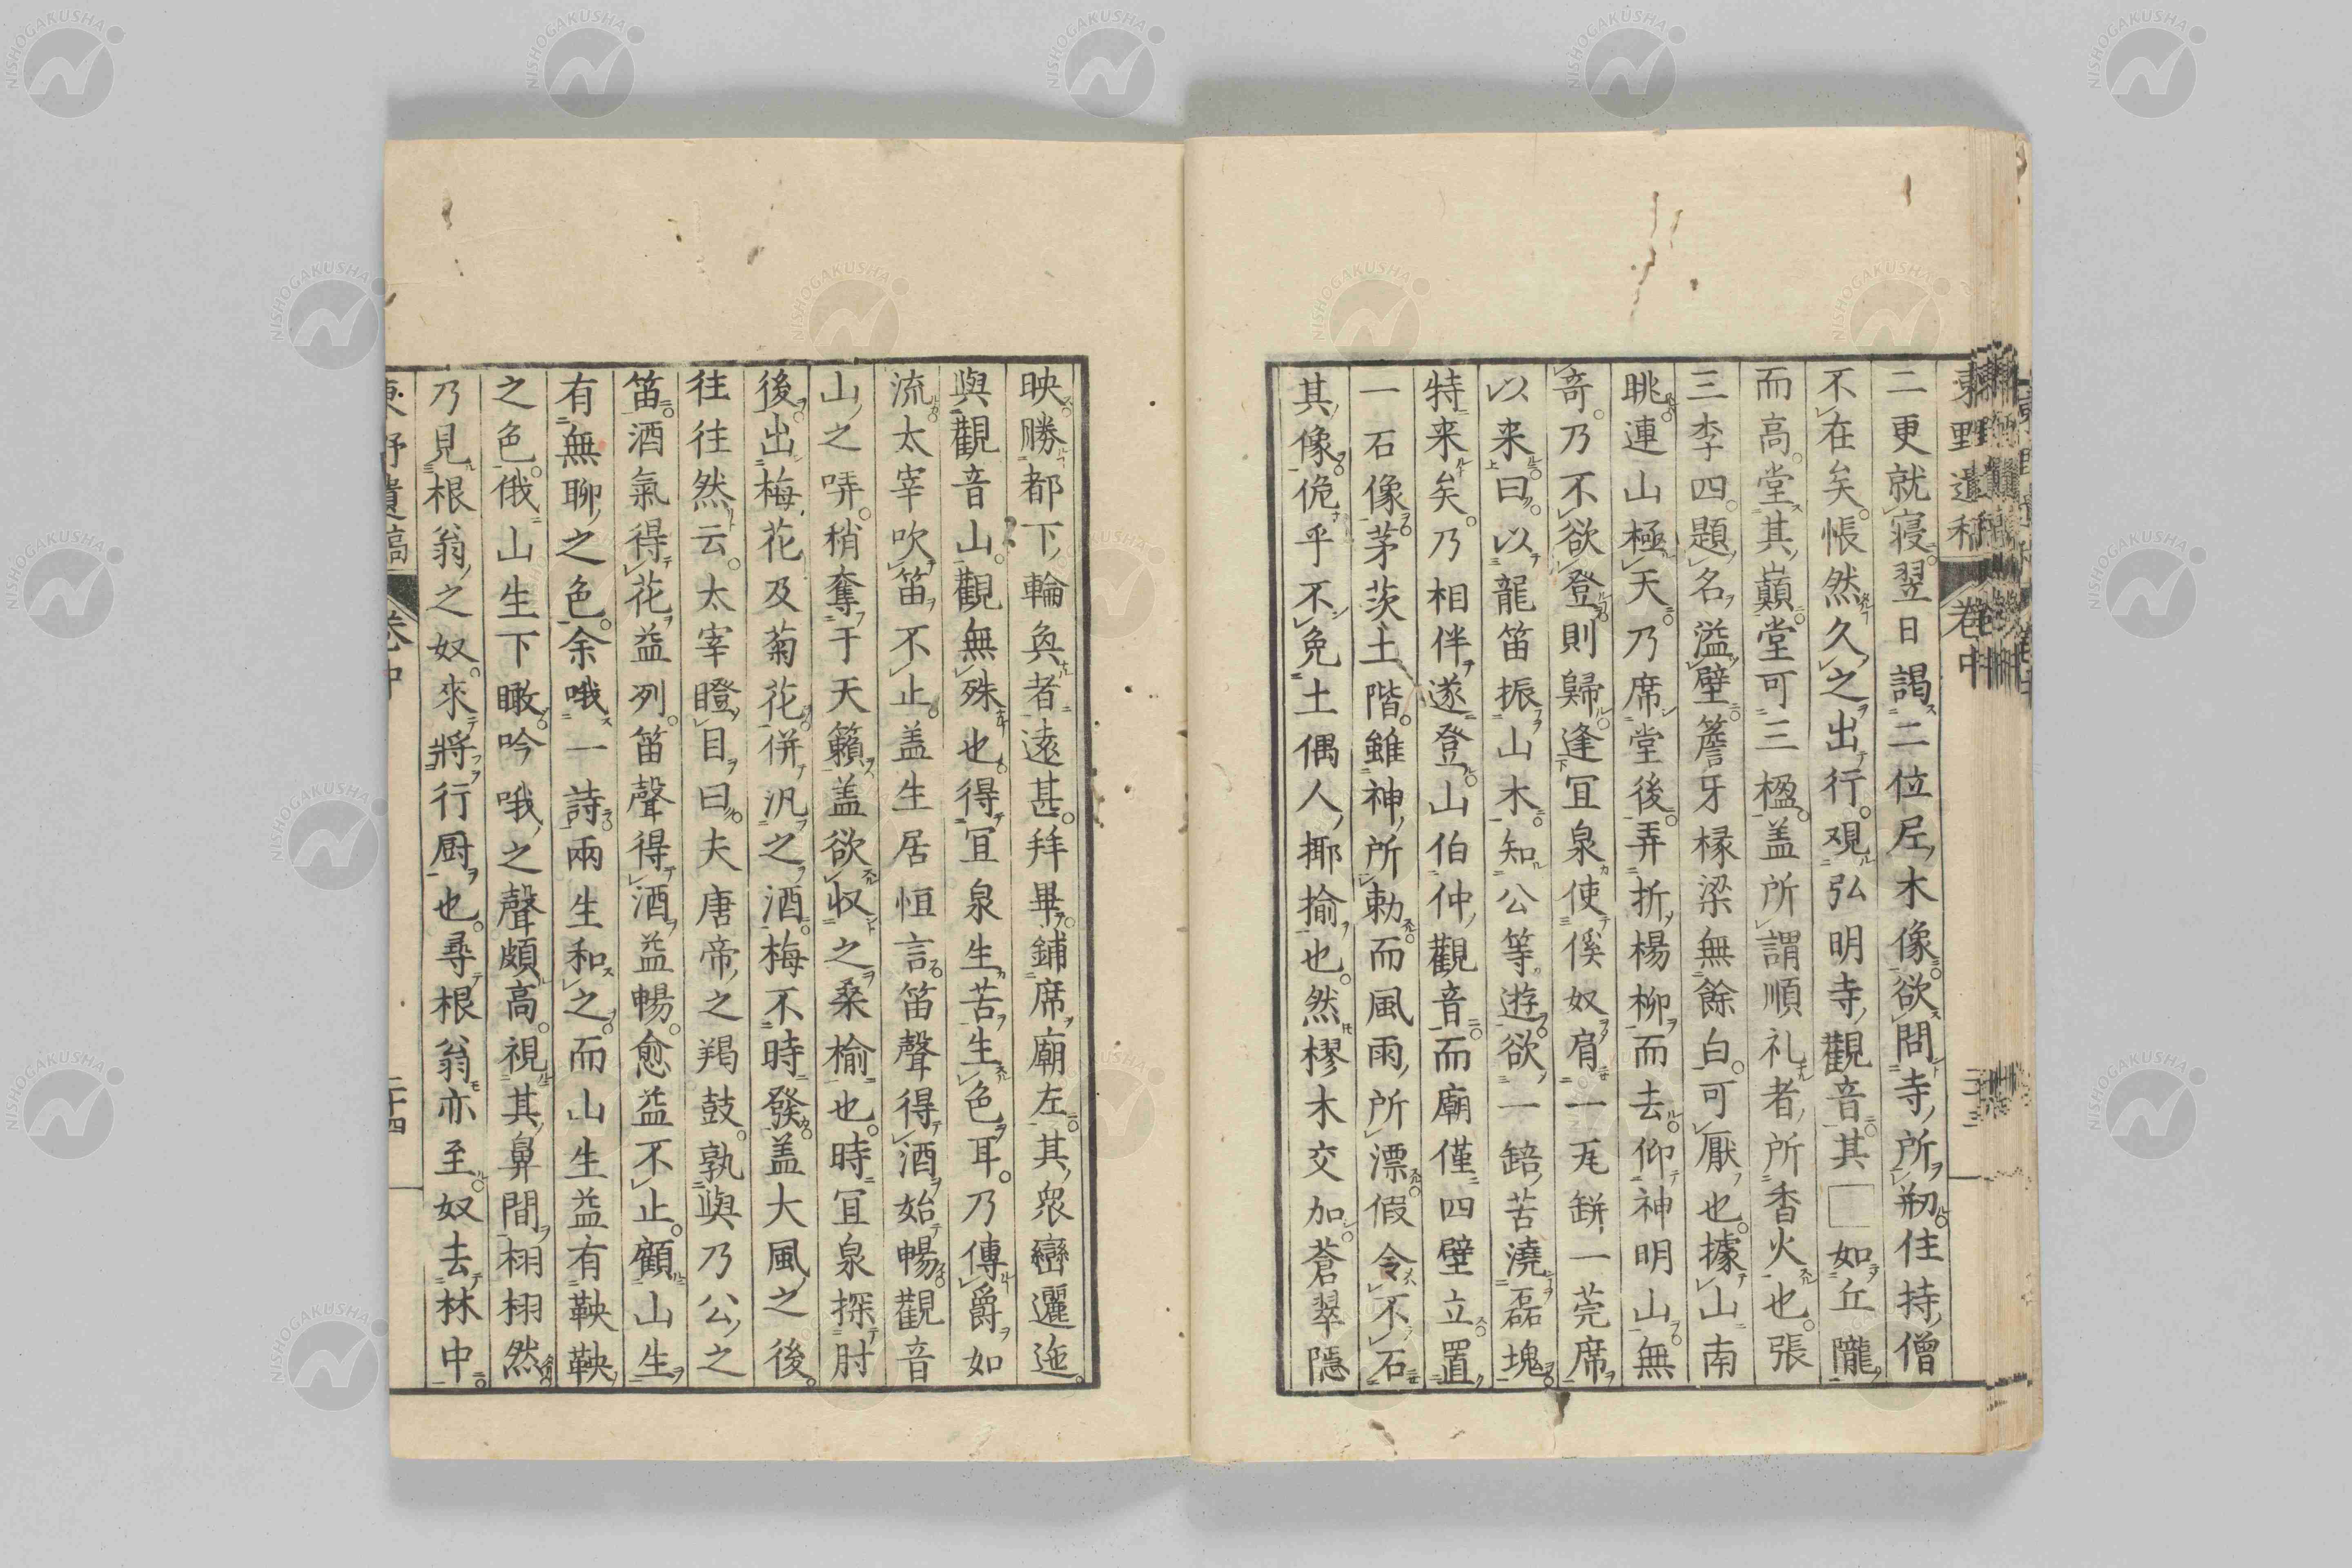 東野遺稿 卷中
二更就寢翌日謁二位尼木像欲問寺所剏住持僧
不在矣悵然久之出行覌弘明寺觀音其□如丘隴
而高堂其巓堂可三楹盖所謂順礼者所香火也張
三李四題名溢壁簷牙椽梁無餘白可厭也據山南
眺連山極天乃席堂後弄折楊柳而去仰神明山無
竒乃不欲登則歸逢冝泉使傒奴肩一瓦缾一莞席
以来曰以龍笛振山木知公等遊欲一䤃苦澆磊塊
特来矣乃相伴遂登山伯仲觀音而廟僅四壁立置
一石像茅茨土階雖神所勅而風雨所漂假令不石
其像佹乎不免土偶人揶揄也然樛木交加蒼翠隱
映勝都下輪奐者遠甚拜畢鋪席廟左其衆巒邐迤
與觀音山觀無殊也得冝泉生苦生色耳乃傳爵如
流太宰吹笛不止盖生居恒言笛聲得酒始暢觀音
山之哢稍奪于天籟盖欲収之桑榆也時冝泉探肘
後出梅花及菊花併汎之酒梅不時發盖大風之後
往往然云太宰瞪目曰夫唐帝之羯鼓孰與乃公之
笛酒氣得花益列笛聲得酒益暢愈益不止顧山生
有無聊之色余哦一詩兩生和之而山生益有鞅鞅
之色俄山生下瞰吟哦之聲頗高視其鼻間栩栩然
乃見根翁之奴來將行厨也尋根翁亦至奴去林中
東野遺稿 卷中 二十四